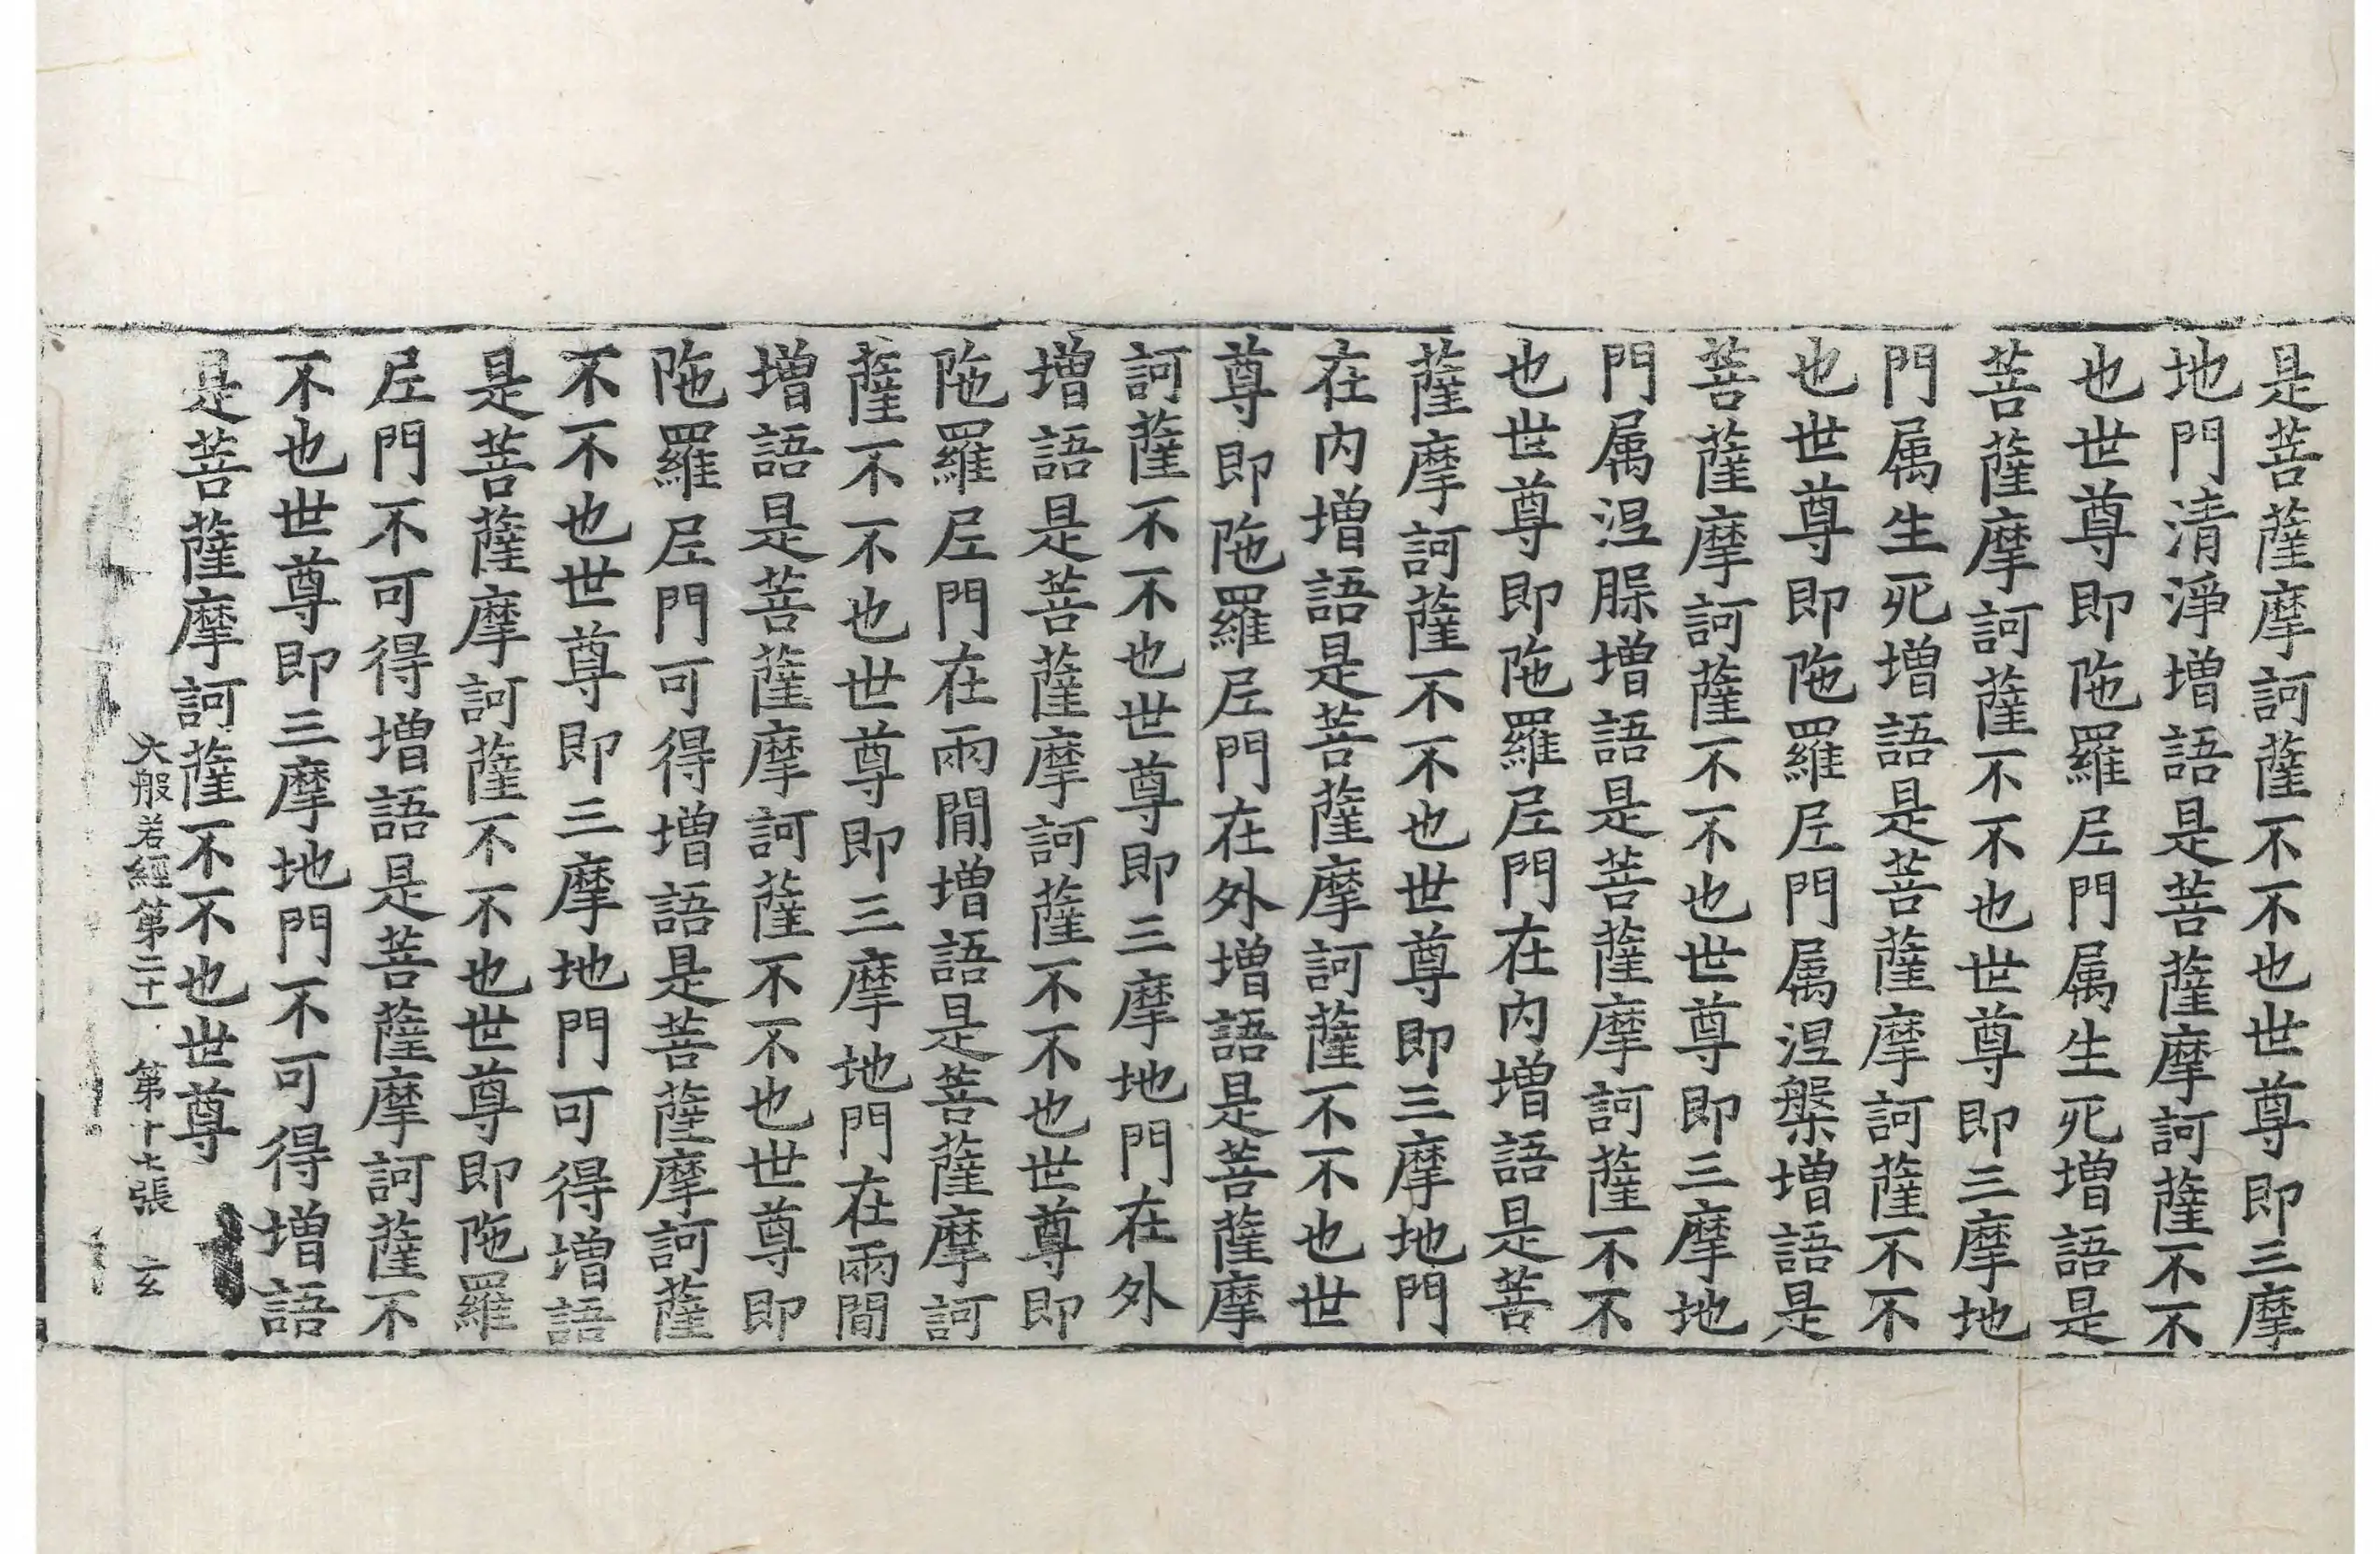 是菩薩摩訶薩不不也世尊即三摩
地門清淨增語是菩薩摩訶薩不不
也世尊即陁羅尼門属生死增語是
菩薩摩訶薩不不也世尊即三摩地
門属生死增語是菩薩摩訶薩不不
也世尊即陁羅尼門属涅槃增語是
菩薩摩訶薩不不也世尊即三摩地
門属涅槃增語是菩薩摩訶薩不不
也世尊即陁羅尼門在內增語是菩
薩摩訶薩不不也世尊即三摩地門
在內增語是菩薩摩訶薩不不也世
尊即陁羅尼門在外增語是菩薩摩
訶薩不不也世尊即三摩地門在外
增語是菩薩摩訶薩不不也世尊即
陁羅尼門在兩閒增語是菩薩摩訶
薩不不也世尊即三摩地門在兩閒
增語是菩薩摩訶薩不不也世尊即
陁羅尼門可得增語是菩薩摩訶薩
不不也世尊即三摩地門可得增語
是菩薩摩訶薩不不也世尊即陁羅
尼門不可得增語是菩薩摩訶薩不
不也世尊即三摩地門不可得增語
是菩薩摩訶薩不不也世尊
大般若經第二十一 第十七張 玄